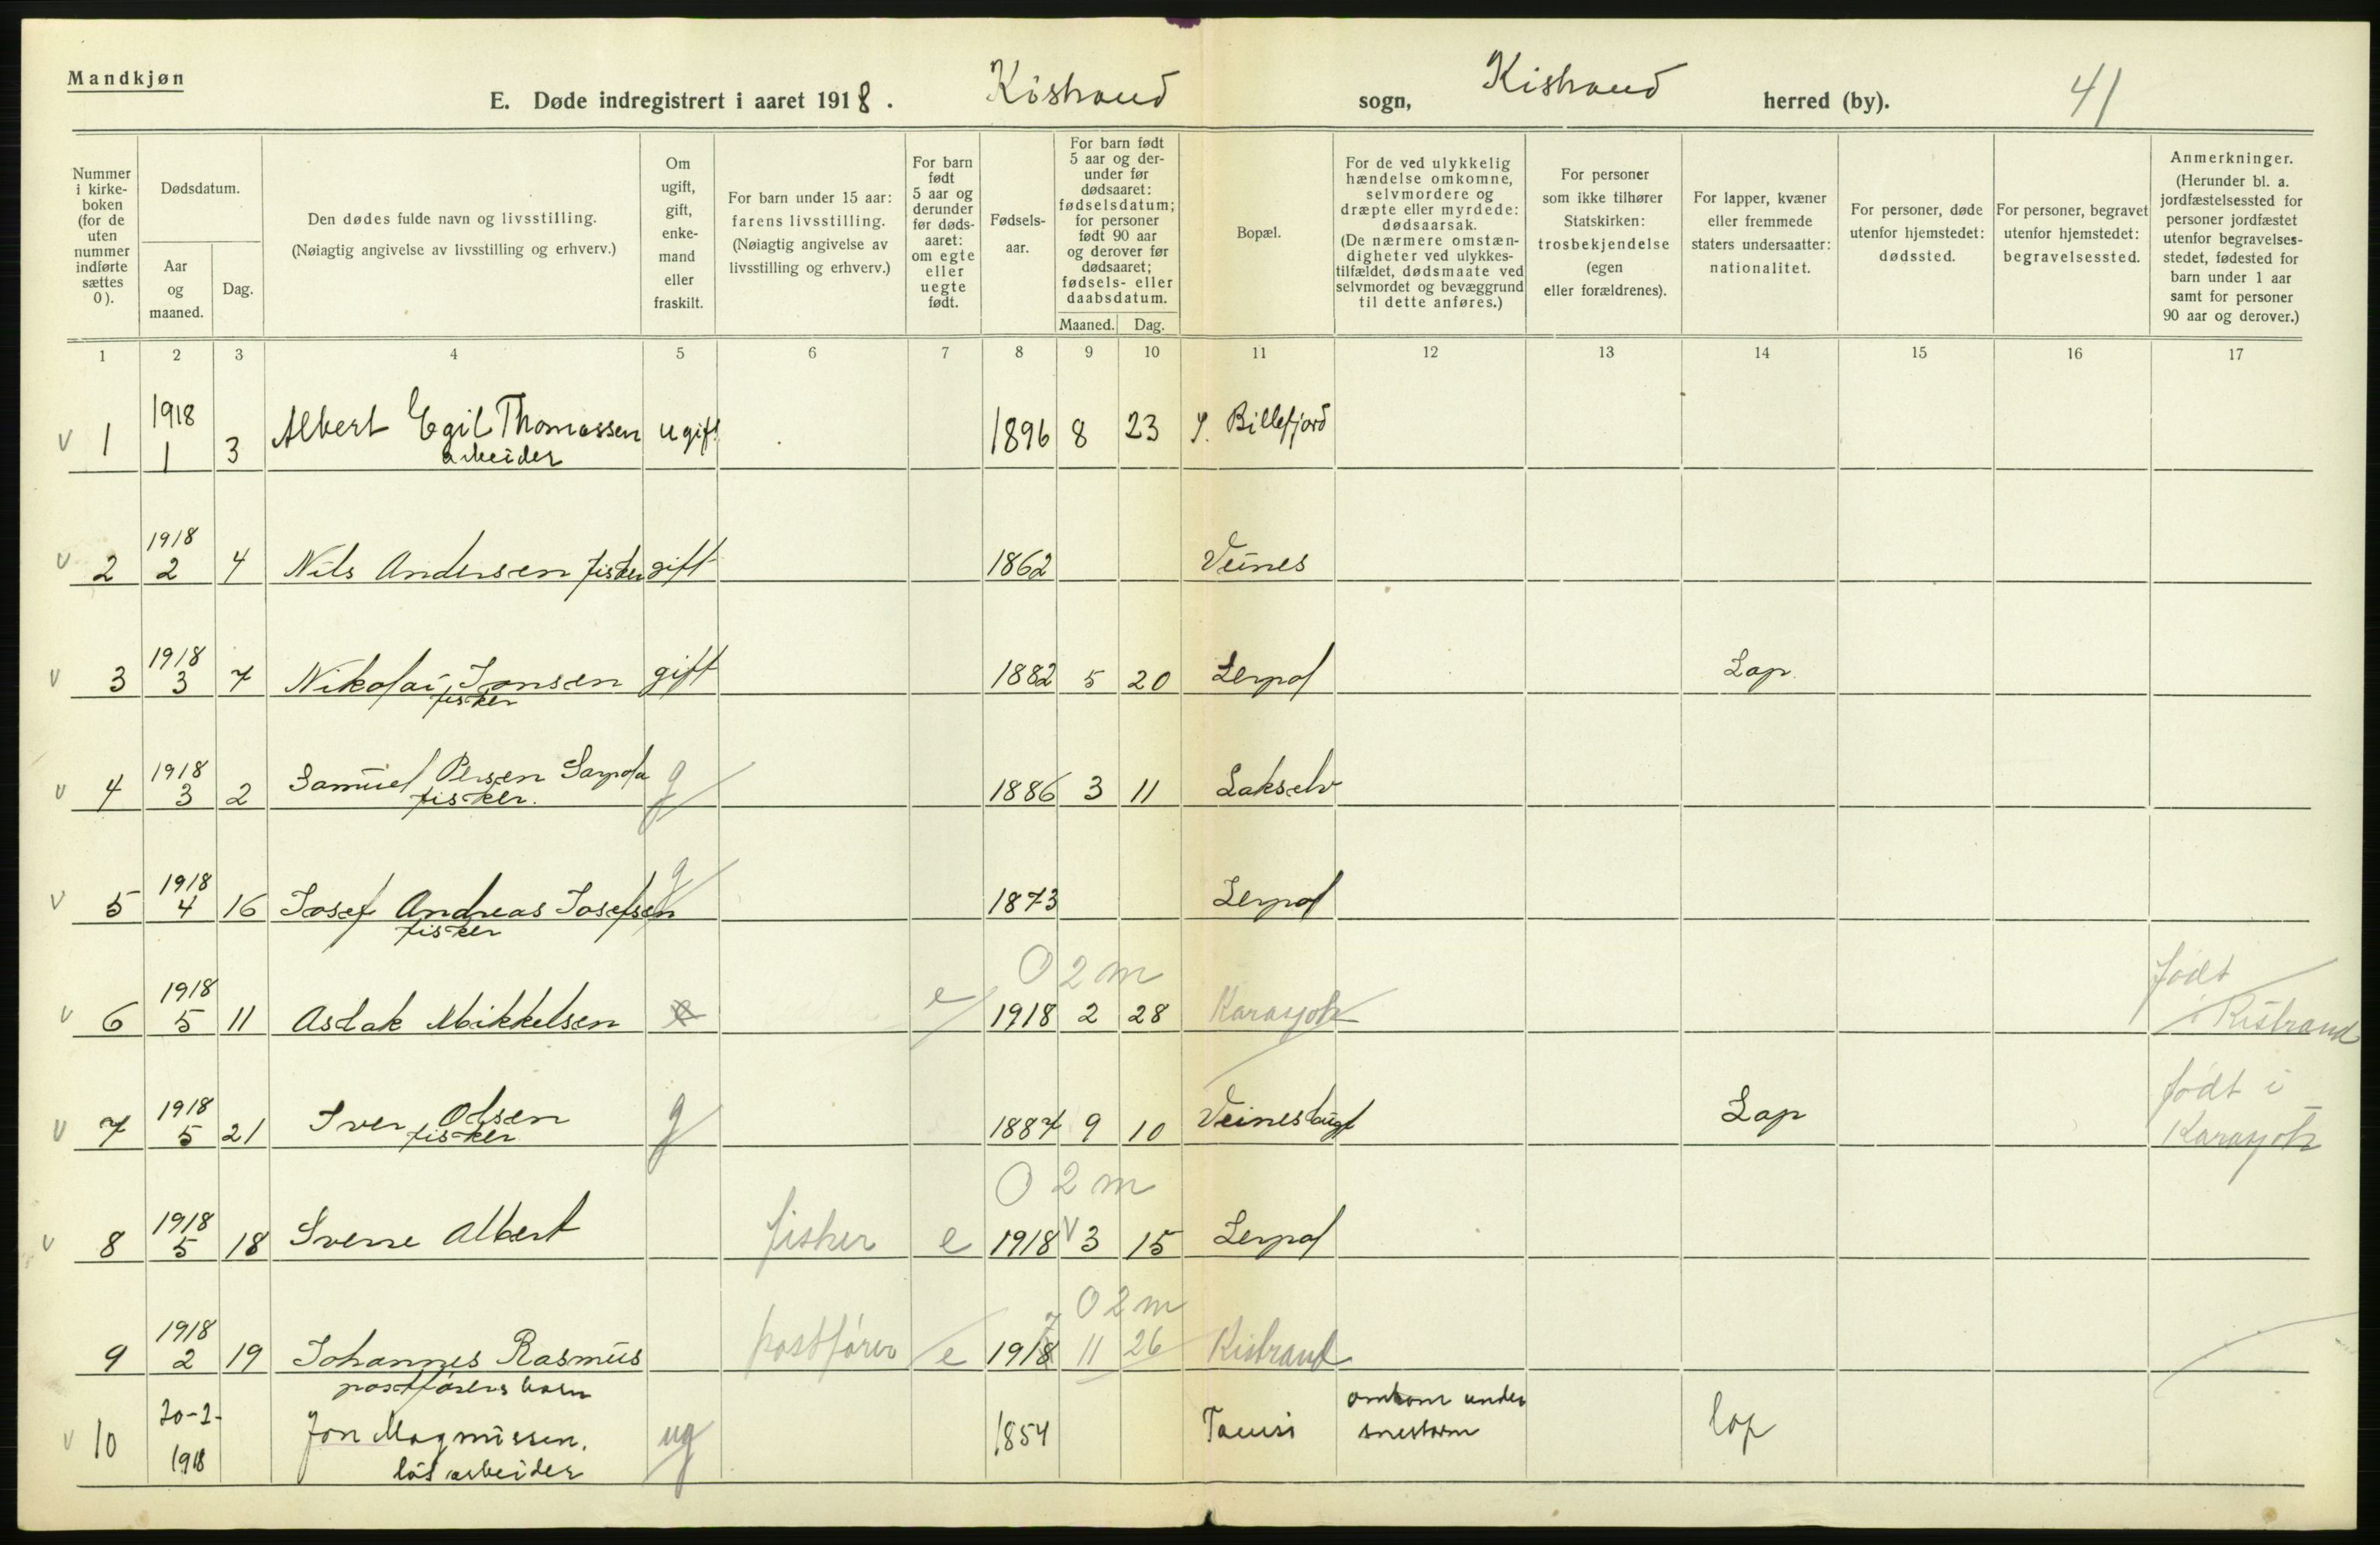 Mandkjøn
E. Døde indregistrert i aaret 1918. Kistrand sogn, Kistrand herred (by). 41
Nummer i kirkeboken (for de uten nummer indførte sættes 0).
Dødsdatum.
Aar og maaned.
Dag.
Den dødes fulde navn og livsstilling.
(Nøiagtig angivelse av livsstilling og erhverv.)
Om ugift, gift, enkemand eller fraskilt.
For barn under 15 aar: farens livsstilling.
(Nøiagtig angivelse av livsstilling og erhverv.)
For barn født 5 aar og derunder før dødsaaret: om egte eller uegte født.
Fødselsaar.
For barn født 5 aar og derunder før dødsaaret: fødselsdatum; for personer født 90 aar og derover før dødsaaret; fødsels- eller daabsdatum.
Maaned. Dag.
Bopæl.
For de ved ulykkelig hændelse omkomne, selvmordere og dræpte eller myrdede: dødsaarsak.
(De nærmere omstændigheter ved ulykkestilfældet, dødsmaate ved selvmordet og bevæggrund til dette anføres.)
For personer som ikke tilhører Statskirken: trosbekjendelse (egen eller forældrenes).
For lapper, kvæner eller fremmede staters undersaatter: nationalitet.
For personer, døde utenfor hjemstedet: dødssted.
For personer, begravet utenfor hjemstedet: begravelsessted.
Anmerkninger.
(Herunder bl. a. jordfæstelsessted for personer jordfæstet utenfor begravelsesstedet, fødested for barn under 1 aar samt for personer 90 aar og derover.)
1 2 3 4 5 6 7 8 9 10 11 12 13 14 15 16 17
v 1 1918 1 3 Albert Egil Thomassen ugift 1896 8 23 Billefjord
arbeider
v 2 1918 2 4 Nils Andersen fisker gift 1862 Veines
v 3 1918 3 7 Nikolai Jonsen gift 1882 5 20 Lerpol Lap.
fisker
v 4 1918 3 2 Samuel Persen Sarpola g 1886 3 11 Lakselv
fisker.
v 5 1918 4 16 Josef Andreas Josefsen g 1873 Lerpol
fisker
0 2 m
v 6 1918 5 11 Aslak Mikkelsen e 1918 2 28 Karasjok født i Kistrand
v 7 1918 5 21 Iver Olsen g 1887 9 10 Veinesbugt Lap født i Karasjok
fisker
0 2 m
v 8 1918 5 18 Sverre Albert fisker e 1918 v 3 15 Lerpol
0 2 m
9 1918 2 19 Johannes Rasmus postfører e 1918 7 11 26 Kistrand
postførers barn
v 10 20-2-1918 Jon Magnussen. ug 1854 omkom under snestorm lap
løsarbeider